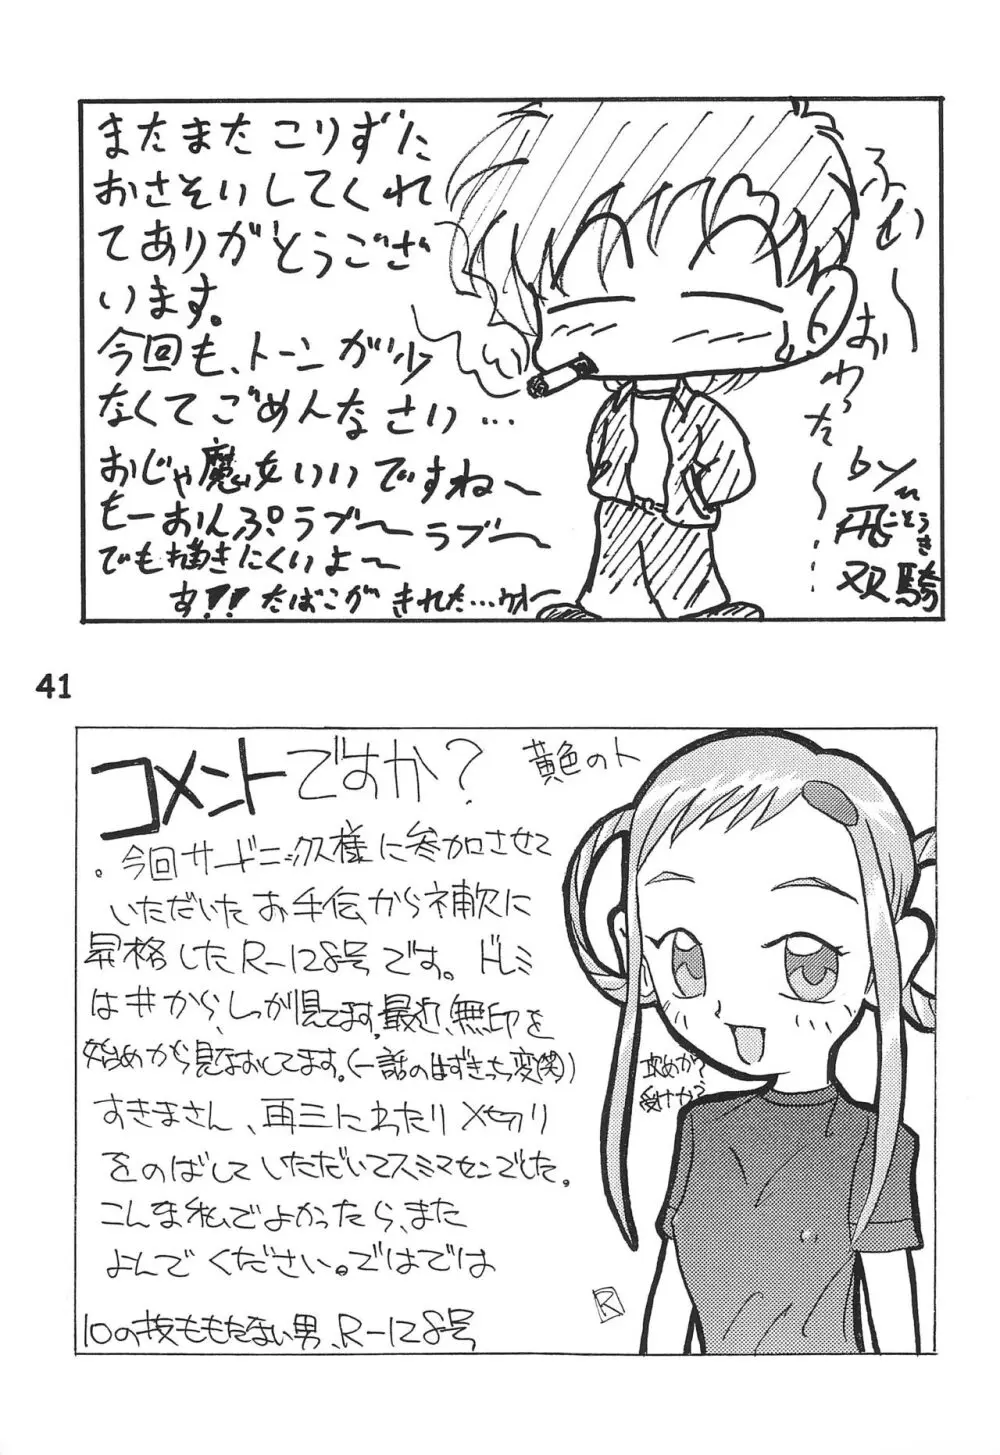 またまたこりずた
おさそいしてくれ
てありがとうござ
います。
今回も、トーンが少
なくてごめんなさい…
おじゃ魔女いいですね〜
もーおんぷラブ〜ラブ〜
でも描きにくいよ〜
す!!たばこがきれた…ウオー
ふい〜おわった〜…
by
飛び
双騎
そうき
41
コメントですか?
黄色のト
。今回サードニックス様に参加させて
いただいたお手伝から補欠に
昇格したR-128号です。ドレミ
は#からしか見てます,最近、無印を
始めから見なおしてます。(一話のはずきっち変(笑))
すきまさん、再三にわたりメ切り
をのばしていただいてスミマセンでした。
こんま私でよかったら、また
よんでください。ではでは
10の技ももたない男、R-128号
攻めか?
受けか?
R